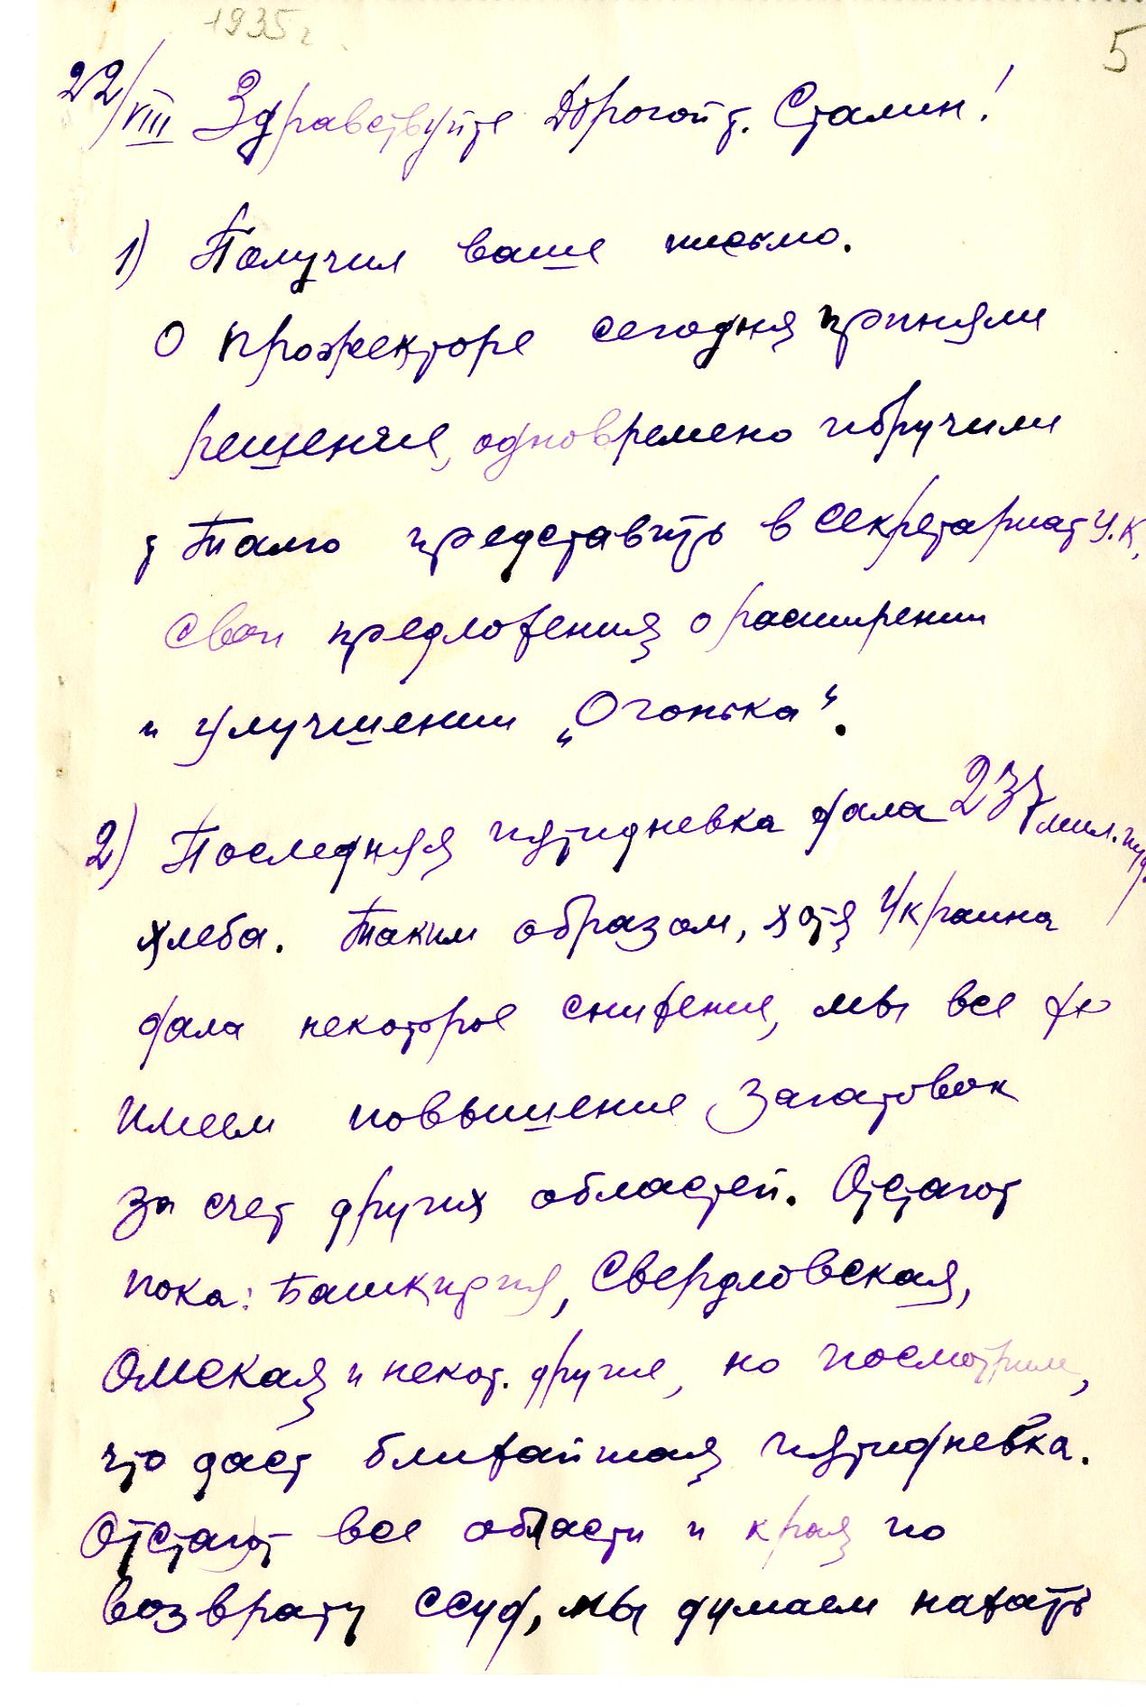 1935 г.
5
22/VIII Здравствуйте Дорогой т. Сталин!
1) Получил ваше письмо.
О прожекторе сегодня приняли
решение, одновремено поручили
т Талю представить в секретариат Ц.К.
свои предложения о расширении
и улучшении „Огонька".
2) Последняя пятидневка дала 237 мил. пуд.
хлеба. Таким образом, хотя Украина
дала некоторое снижение, мы все же
имеем повышение заготовок
за счет других областей. Отстают
пока: Башкирия, Свердловская,
Омская и некот. другие, но посмотрим,
что даст ближайшая пятидневка.
Отстают все области и края по
возврату ссуд, мы думаем нажать